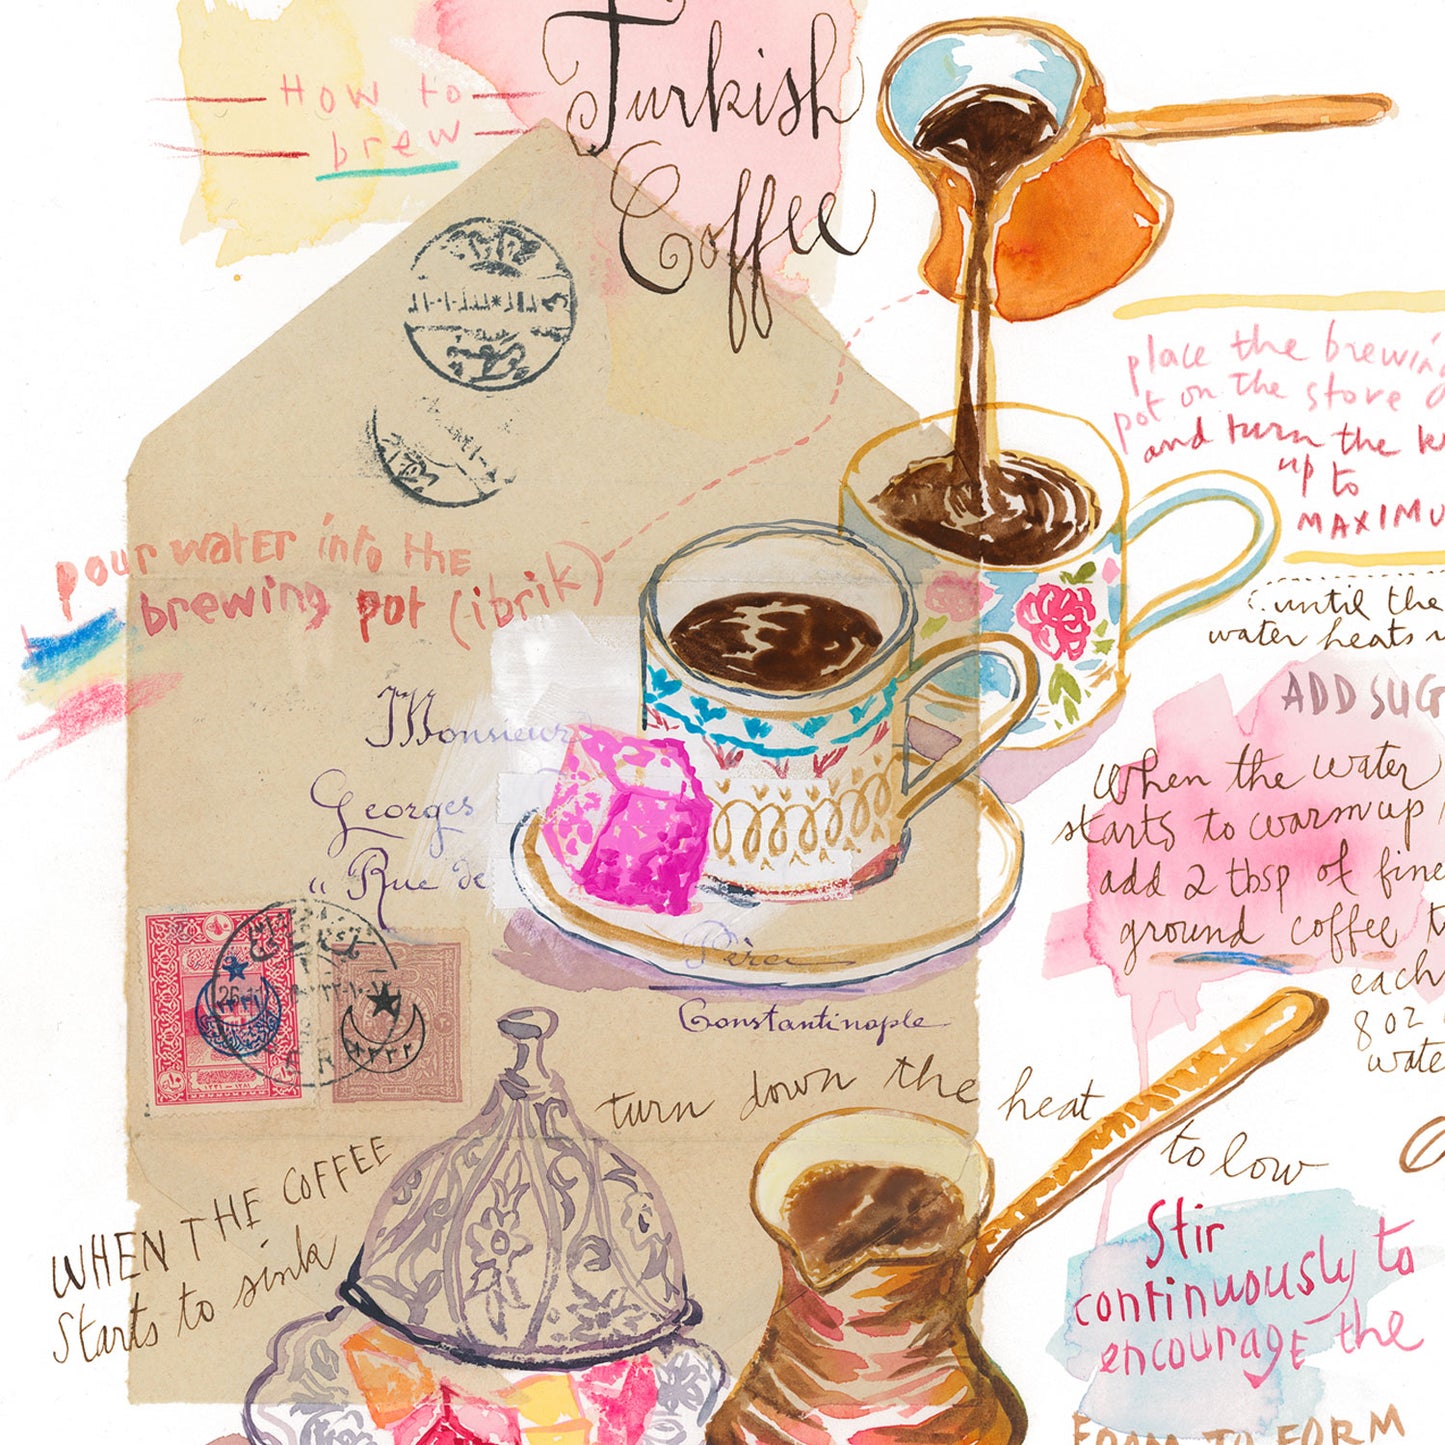 Turkish
Coffee
How to
brew
pour water into the
brewing pot (ibrik)
place the brewing
pot on the stove
and turn the
up to
MAXIMU
until the
water heats
ADD SUG
When the water
starts to warm up
add 2 tbsp of fine
ground coffee
each
8 oz
wate
Monsieur
Georges
" Rue de
Péra
Constantinople
turn down the heat
to low
WHEN THE COFFEE
Starts to sink
Stir
continuously to
encourage the
FOAM TO FORM